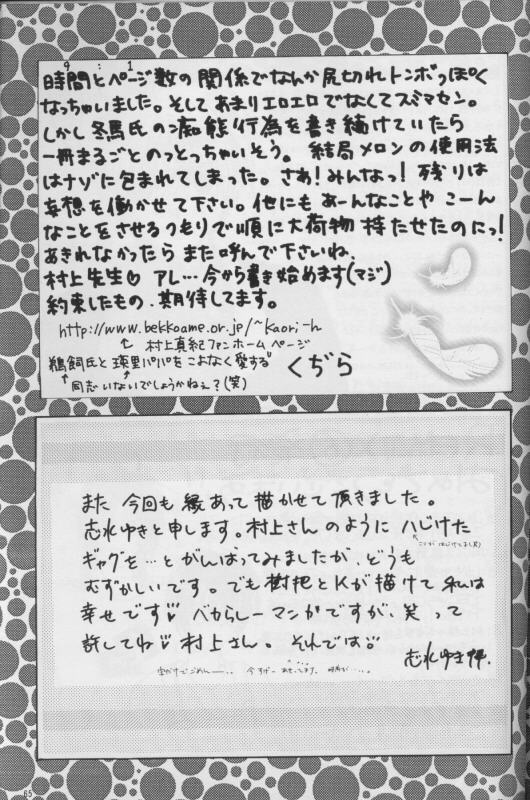 9:1
時間とページ数の関係でなんか尻切れトンボっぽく
なっちゃいました。そしてあまりエロエロでなくてスミマセン。
しかし冬馬氏の痴態行為を書き続けていたら
一冊まるごとのっとっちゃいそう。結局メロンの使用法
はナゾに包まれてしまった。さあ!みんなっ!残りは
妄想を働かせて下さい。他にもあーんなことや こーん
なことをさせるつもりで順に大荷物 持たせたのにっ!
あきれなかったら また呼んで下さいね、
村上先生♡ アレ…今から書き始めます(マジ)
約束したもの、期待してます。
http://www.bekkoame.or.jp/~kaori-h
村上真紀ファンホームページ
鵜飼氏と瑛里パパをこよなく愛する くぢら
同志いないでしょうかねぇ?(笑)
また 今回も縁あって描かせて頂きました。
志水ゆきと申します。村上さんのように ハじけた
ギャグを…とがんばってみましたが、どうも
むずかしいです。でも樹把とKが描けて 私は
幸せです♡ バカらしーマンガですが、笑って
許してね♡ 村上さん。それでは♡
志水ゆき拝.
65